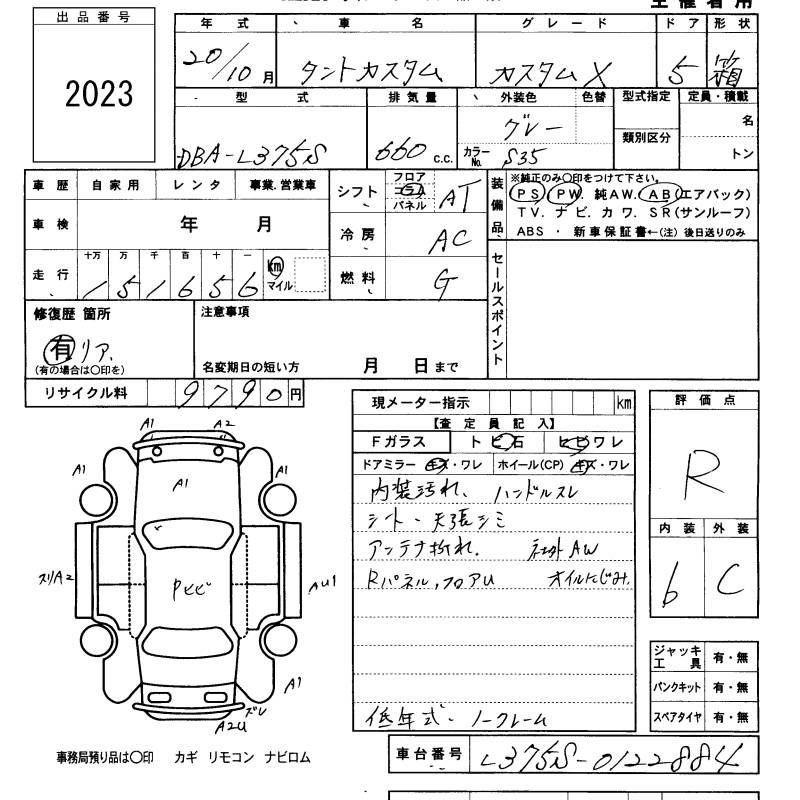 出品番号
2023
主催者用
年式 車名 グレード ドア 形状
20/10月 タントカスタム カスタムX 5 箱
型式 排気量 外装色 色替 型式指定 定員・積載
DBA-L375S 660 c.c. グレー 名
カラーNo. S35 類別区分 トン
車歴 自家用 レンタ 事業.営業車
車検 年 月
走行 十万 万 千 百 十 一
151656 km マイル
シフト フロア コラム パネル AT
冷房 AC
燃料 G
装備品 ※純正のみ〇印をつけて下さい。
PS. PW. 純AW. AB(エアバック)
TV. ナビ. カワ. SR(サンルーフ)
ABS ・ 新車保証書←(注) 後日送りのみ
セールスポイント
修復歴 箇所
有 リア.
(有の場合は〇印を)
注意事項
名変期日の短い方 月 日まで
リサイクル料 9790円
現メーター指示 km
【査定員記入】
Fガラス トビ石 ヒビワレ
ドアミラー キズ・ワレ ホイール(CP) キズ・ワレ
内装汚れ、ハンドルスレ
シート・天張シミ
アンテナ折れ. 社外AW
Rパネル,フロアU オイルにじみ.
低年式・ノークレーム
評価点
R
内装 外装
6 C
ジャッキ工具 有・無
パンクキット 有・無
スペアタイヤ 有・無
A1 A2
A1 A1 A1
スリA2 Pヒビ AU1
A1
ズレ
A2U
事務局預り品は〇印 カギ リモコン ナビロム
車台番号 L375S-0122884